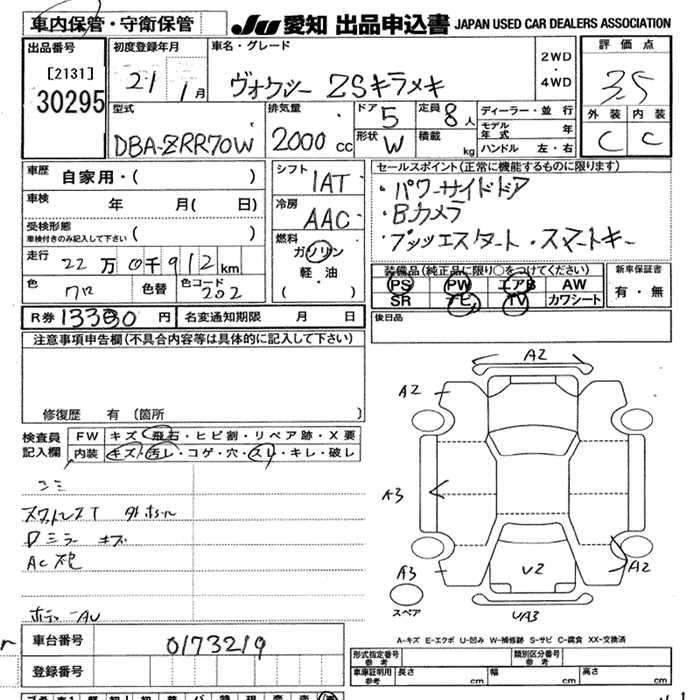 車内保管・守衛保管 JU 愛知 出品申込書 JAPAN USED CAR DEALERS ASSOCIATION
出品番号 [2131] 30295
初度登録年月 21 1月
車名・グレード ヴォクシー ZSキラメキ
2WD・4WD
評価点 3.5
外装 C 内装 C
型式 DBA-ZRR70W
排気量 2000 cc
ドア 5 形状 W
定員 8人 積載 kg
ディーラー・並行
モデル年式 年
ハンドル 左・右
車歴 自家用・( )
車検 年 月( 日)
受検形態 車検付きのみ記入して下さい ( )
走行 22万0千912km
色 クロ 色替 色コード 202
シフト IAT
冷房 AAC
燃料 ガソリン 軽・油 ( )
セールスポイント(正常に機能するものに限ります)
・パワーサイドドア
・Bカメラ
・プッシュスタート・スマートキー
装備品(純正品に限り○をつけてください)
PS PW エアB AW
SR ナビ TV カワシート
新車保証書 有・無
R券 13330円 名変通知期限 月 日
後日品
注意事項申告欄(不具合内容等は具体的に記入して下さい)
修復歴 有 〔箇所 〕
検査員記入欄
FW キズ・飛石・ヒビ割・リペア跡・X要
内装 キズ・汚レ・コゲ・穴・スレ・キレ・破レ
Dミラーキズ
A2
A2
A3
A3
V2
A2
UA3
スペア
A-キズ E-エクボ U-凹み W-補修跡 S-サビ C-腐食 XX-交換済
車台番号 0173219
登録番号
形式指定番号 参考 類別区分番号 参考
車庫証明用 参考 長さ cm 幅 cm 高さ cm